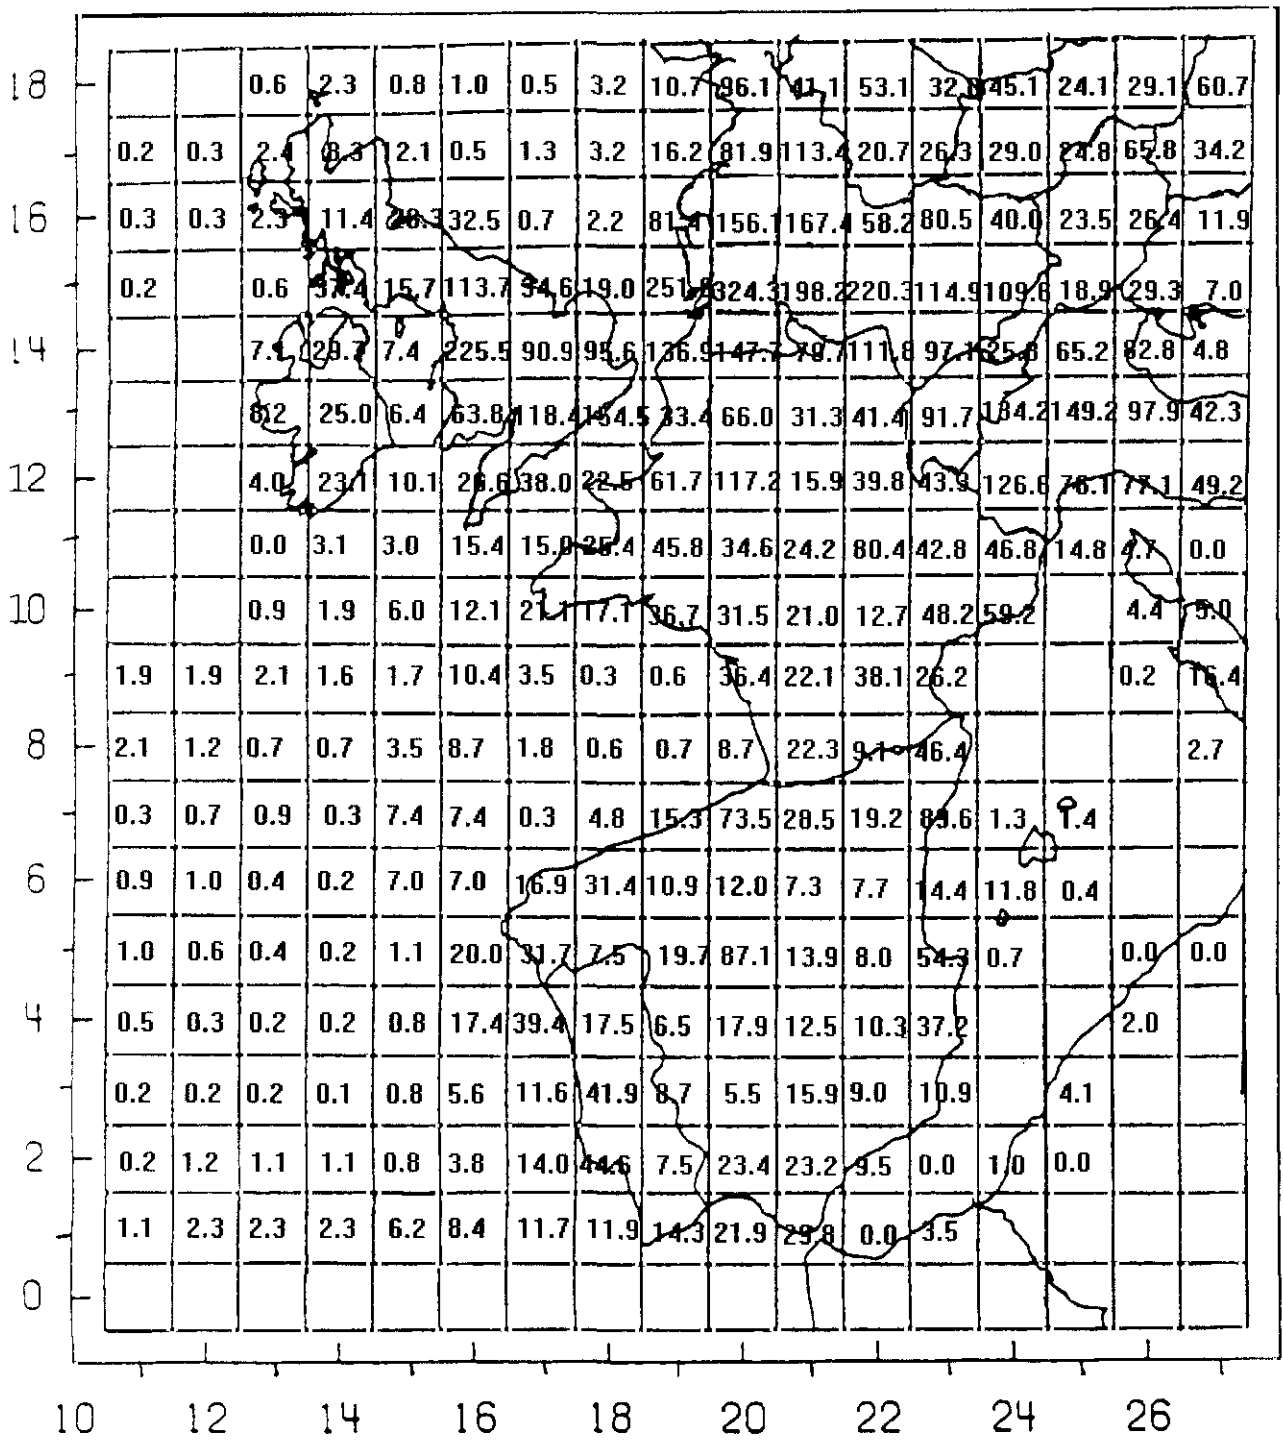 18 0.6 2.3 0.8 1.0 0.5 3.2 10.7 96.1 41.1 53.1 45.1 24.1 29.1 60.7
0.2 0.3 2.4 8.3 2.1 0.5 1.3 3.2 16.2 81.9 113.4 20.7 26.3 29.0 24.8 65.8 34.2
16 0.3 0.3 2.3 11.4 28.3 32.5 0.7 2.2 81.4 156.1 167.4 58.2 80.5 40.0 23.5 26.4 11.9
0.2 0.6 37.4 15.7 113.7 34.6 19.0 324.3 198.2 220.3 114.9 109.6 18.9 29.3 7.0
14 29.7 7.4 225.5 90.9 95.6 136.9 147.7 79.7 111.8 65.2 82.8 4.8
8.2 25.0 6.4 63.8 118.4 154.5 33.4 66.0 31.3 41.4 91.7 134.2 149.2 97.9 42.3
12 4.0 23.1 10.1 26.6 38.0 22.5 61.7 117.2 15.9 39.8 43.3 126.6 77.1 49.2
0.0 3.1 3.0 15.4 15.0 25.4 45.8 34.6 24.2 80.4 42.8 46.8 14.8 4.7 0.0
10 0.9 1.9 6.0 12.1 21.1 17.1 36.7 31.5 21.0 12.7 48.2 59.2 4.4 5.0
1.9 1.9 2.1 1.6 1.7 10.4 3.5 0.3 0.6 36.4 22.1 38.1 26.2 0.2 16.4
8 2.1 1.2 0.7 0.7 3.5 8.7 1.8 0.6 0.7 8.7 22.3 9.1 46.4 2.7
0.3 0.7 0.9 0.3 7.4 7.4 0.3 4.8 15.3 73.5 28.5 19.2 89.6 1.3 1.4
6 0.9 1.0 0.4 0.2 7.0 7.0 16.9 31.4 10.9 12.0 7.3 7.7 14.4 11.8 0.4
1.0 0.6 0.4 0.2 1.1 20.0 31.7 7.5 19.7 87.1 13.9 8.0 54.3 0.7 0.0 0.0
4 0.5 0.3 0.2 0.2 0.8 17.4 39.4 17.5 6.5 17.9 12.5 10.3 37.2 2.0
0.2 0.2 0.2 0.1 0.8 5.6 11.6 41.9 8.7 5.5 15.9 9.0 10.9 4.1
2 0.2 1.2 1.1 1.1 0.8 3.8 14.0 44.6 7.5 23.4 23.2 9.5 0.0 1.0 0.0
1.1 2.3 2.3 2.3 6.2 8.4 11.7 11.9 14.3 21.9 29.8 0.0 3.5
0
10 12 14 16 18 20 22 24 26